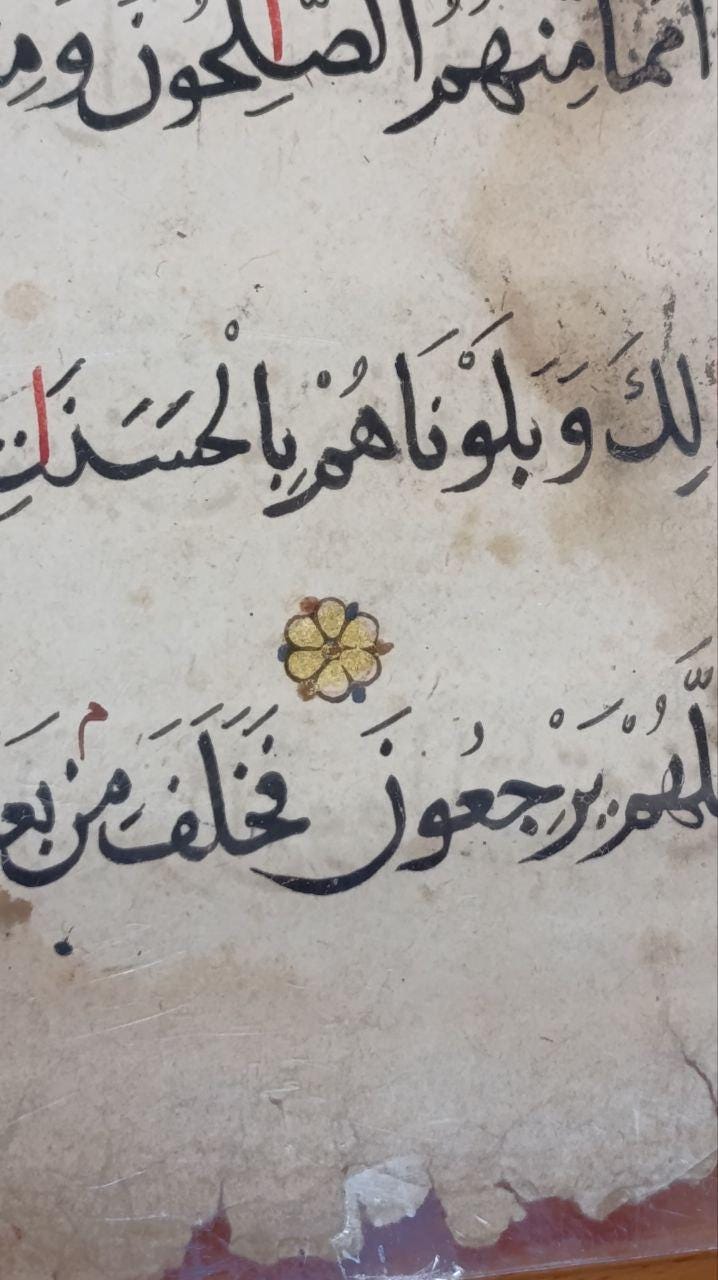 امما مِنهُمُ الصَّالِحُونَ وَمِ
لِكَ وَبَلَوْنَاهُمْ بِالْحَسَنَاتِ
لَّهُمْ يَرْجِعُونَ فَخَلَفَ مِن بَع